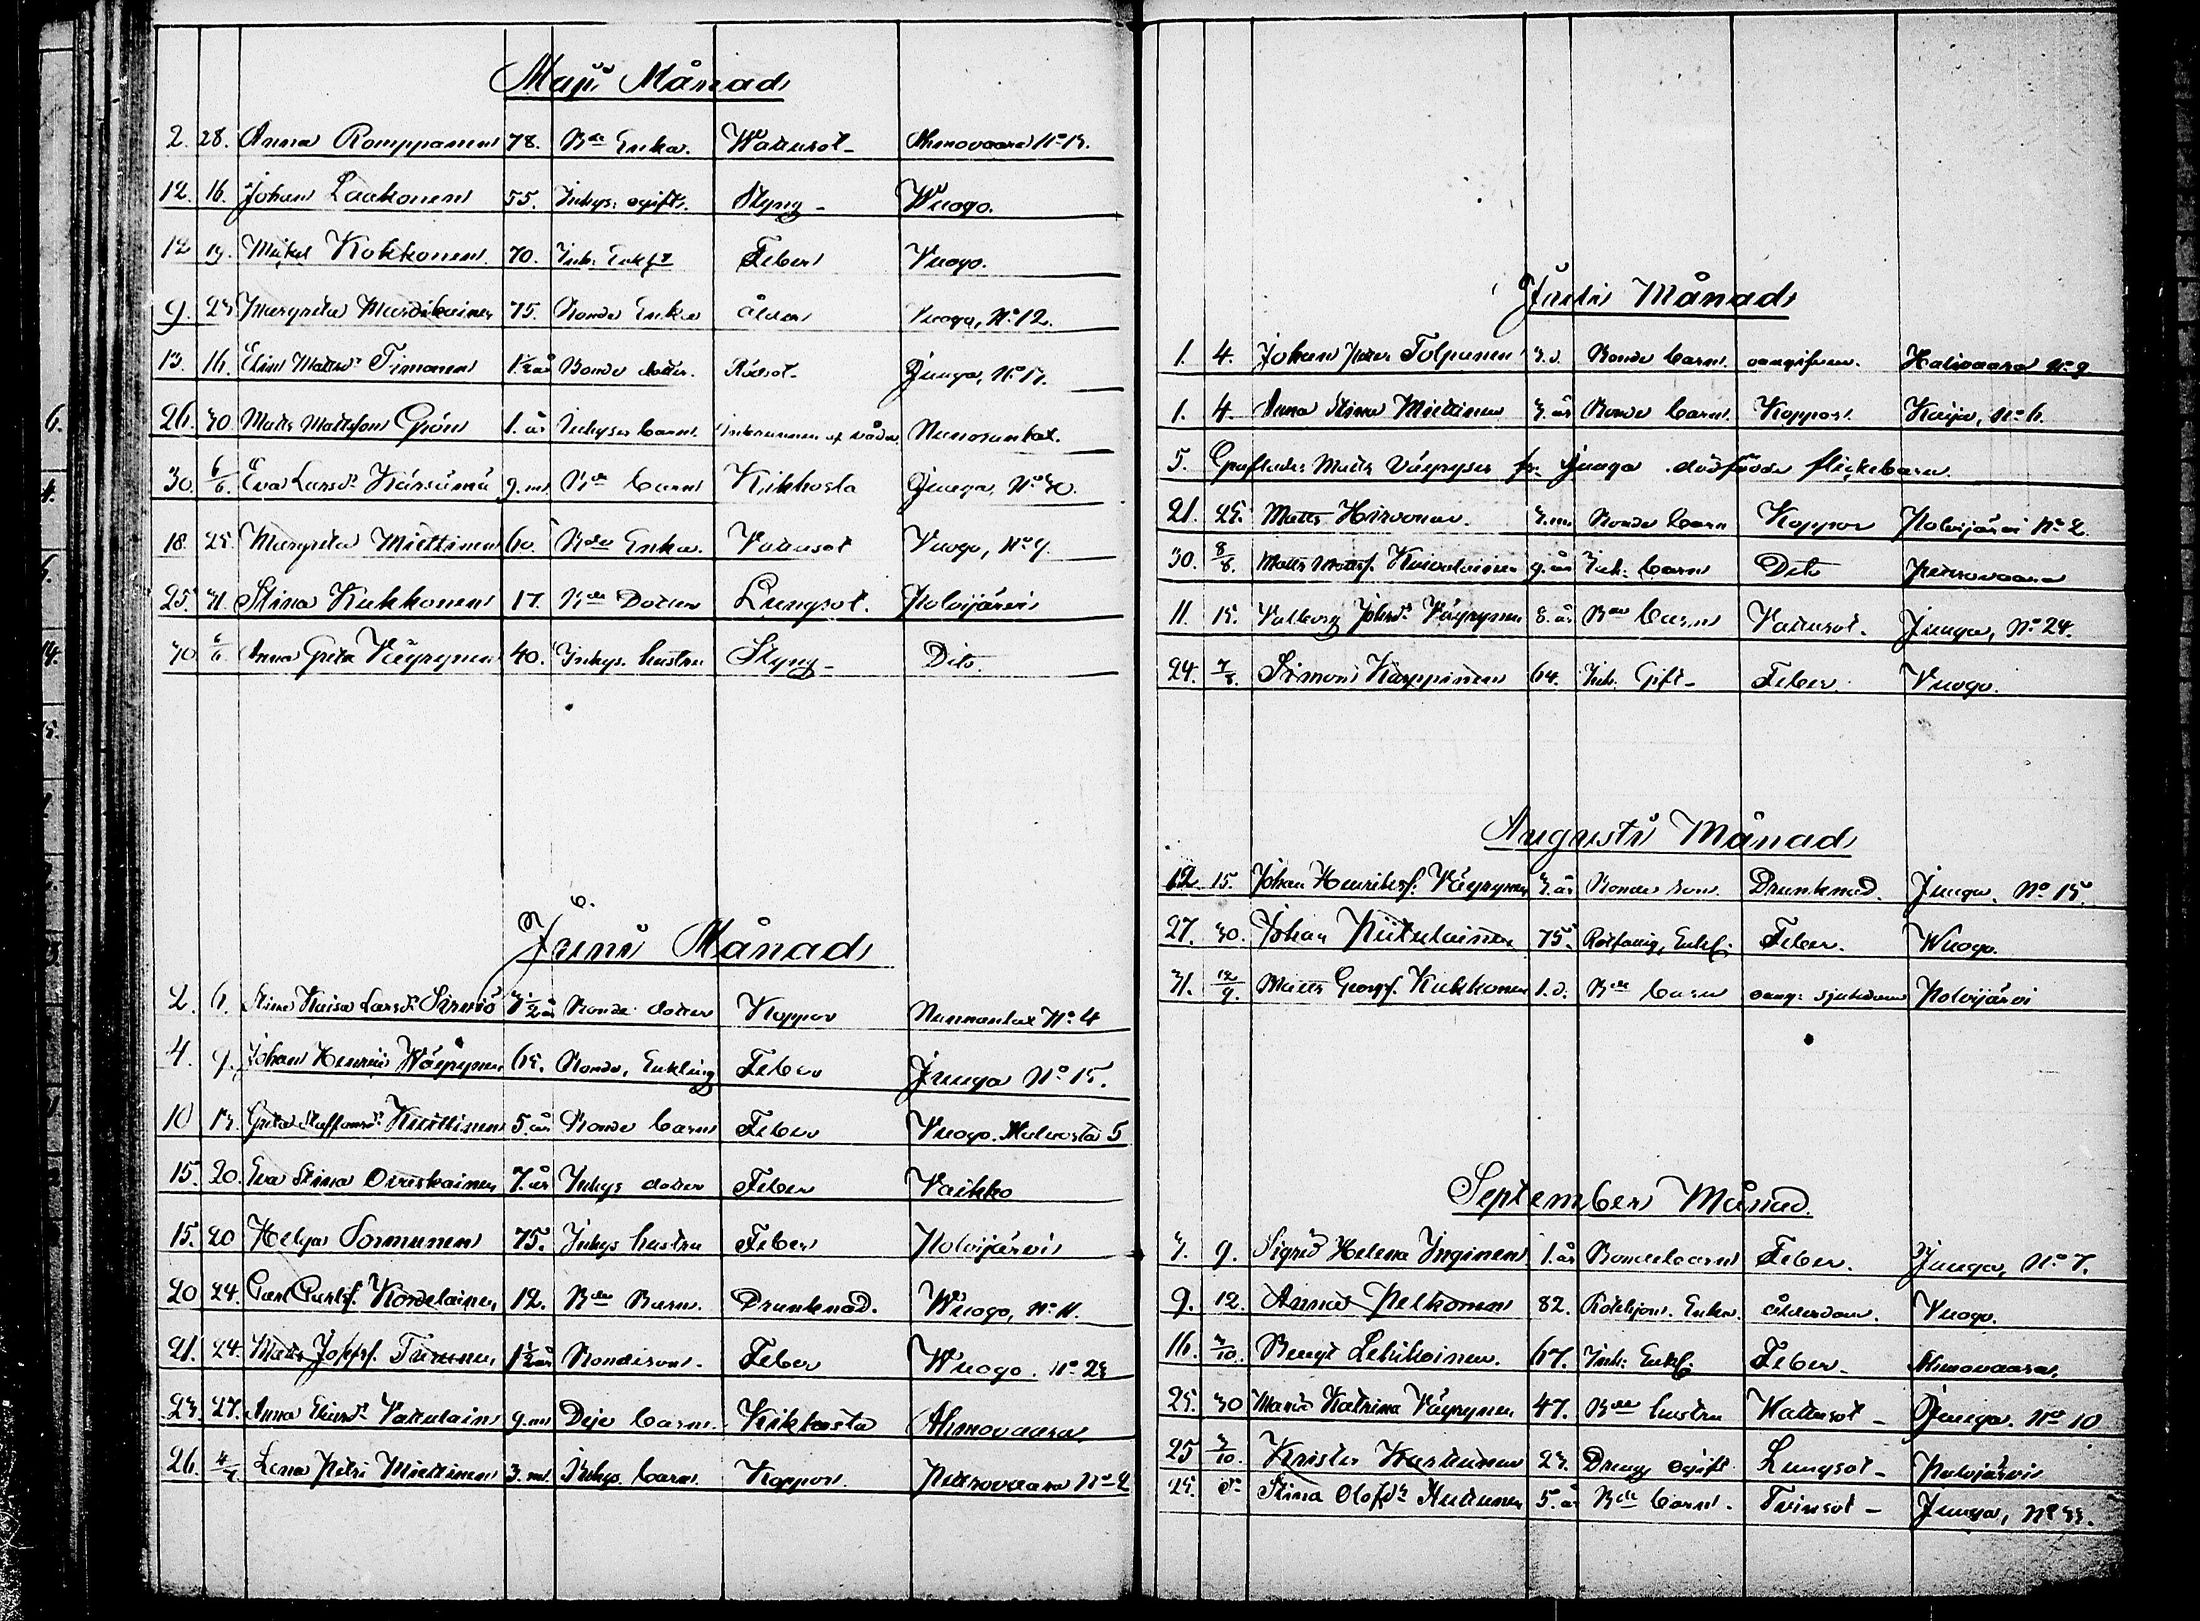 Maji Månad
2. 28. Anna Romppanen 78. Bde Enka. Wattusot- Ahmovaara No 13.
12. 16. Johan Laakkonen 55. Inhys: ogift. Styng- Wuogo.
12 19. Mikel Kokkonen. 70. Inh: Enkl: Feber Vuogo.
9. 23. Margreta Mustikainen 75. Bonde Enka ålder Vuogo, No 12.
13. 16. Elin Mattsdr Timonen 1 1/2 år Bonde dotter. Rödsot. Juuga, No 17.
26. 30. Matts Mattsson Grön 1. år Inhyses barn. af våda Nunosuntat.
30. 6/6. Eva Larsdr Kärsämä 9. m Bde barn Kikhosta Juuga, No 30.
18. 25. Margreta Miettinen 60. Bde Enka. Vattusot Vuogo, No 9.
25. 31. Stina Kukkonen 17. Bde Dotter Lungsot. Polvijärvi
30 6/6. Anna Greta Väyrynen 40. Inhys. hustru Styng- Dito.
Juni Månad
2. 6. Stina Kaisa Larsdr Sirviö 3 1/2 år Bonde dotter Koppor Nunnanlax No 4
4. 9. Johan Henric Wäyrynen 65. Bonde, Enkling Feber Juuga No 15.
10 13. Greta Staffansdr Kuittinen 5. år Bonde barn Feber Vuogo. 5
15. 20. Eva Stina Ovaskainen 7. år Inhys dotter Feber Vaikko
15. 20 Helga Sormunen 75. Inhys hustru Feber Polvijärvi
20 24. Carl Gustf. Kondelainen 12. Bde Barn. Drunknad. Wuogo, No 11.
21. 24. Matts Josefs. Turunen 1 1/2 år Bondeson. Feber Wuogo. No 23
23. 27. Anna Vattulain 9. m Deje barn. Kikhosta Ahmovaara
26. 4/7. Lena Petri Miettinen 3. m. Inhys. barn. Koppor. Petrovaara No 2
Juli Månad
1. 4. Johan Peter Tolpanen 3. d. Bonde barn. Halivaara No 9
1. 4. Anna Stina Miettinen 3. år Bonde barn. Koppor. Kajo, No 6.
5. Graflades Matts Väyryses fr. Juuga dödfödda flickebarn.
21. 25. Matts Hirvonen. 3. m. Bonde barn Koppor Polvijärvi No 2.
30. 8/8. Matts Mattss. Kuivalainen 9. år Inh: barn Dito Petrovaara
11. 15. Valborg Johsdr Väyrynen 8. år Bde barn Vattusot. Juuga, No 24.
24. 7/8. Simon Karppinen 64. Inh. Gift- Feber Vuogo.
Augusti Månad
12 15. Johan Henrikss. Väyrynen 3. år Bonde son. Drunknad. Juuga. No 15.
27. 30. Johan Piitulainen 75. Rotfattig, Enkl. Feber. Wuogo.
31. 12/9. Matts Georgs. Kukkonen 1. d. Bde barn oang: sjukdom Polvijärvi
September Månad.
7. 9. Sigrid Helena Inginen 1. år Bondebarn Feber. Juuga, No 7.
9. 12. Anna Pelkonen 82. Enka. ålderdom Vuogo.
16. 3/10. Bengt Lehikoinen. 67. Inh: Enkl. Feber- Ahmovaara,
25. 30 Maria Katrina Väyrynen 47. Bde hustru Wattusot- Juuga. No 10
25 3/10. Krister Karttunen 23. Dreng ogift Lungsot- Polvijärvi
25. d- Stina Olofdr Huttunen 5. år Bde barn. Tvinsot- Juuga, No 33.